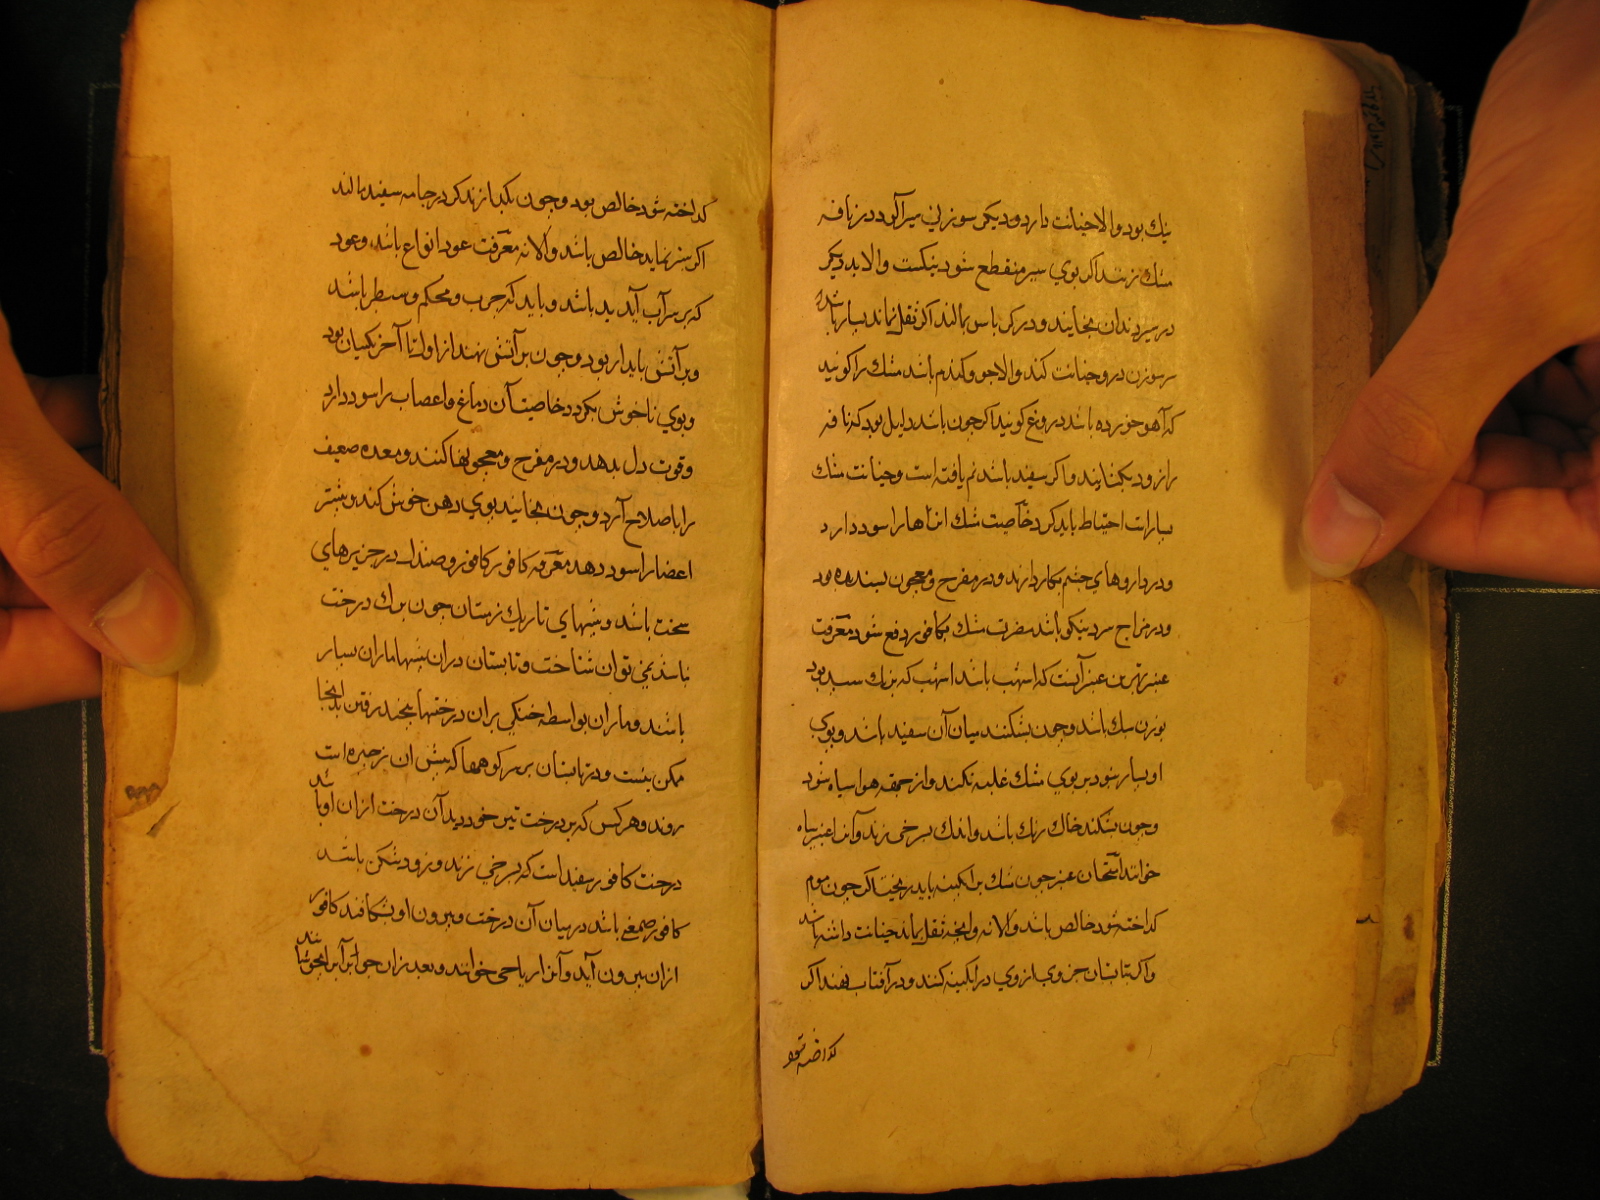 نیك بود والا خیانت دارد و دیكر سوزنی سیرآلود در نافه
مشك زنند اكر بوي سیر منقطع شود نیكست والا بد دیكر
در سر دندان بخایند و در كرباس بمالند اكر ثقل نماند بسیار باشد
سر سوزن درو خیانت كند والا جو و كندم باشد مشك را كویند
كه آهو خورده باشد دروغ كویند اكر جون باشد دلیل بود كه نافه
را زود بكشایند و اكر سفید باشد نم یافته است و خیانت مشك
بسیارست احتیاط باید كرد خاصیت مشك انتها را سود دارد
و در داروهاي چشم بكار دارند و در مفرح و معجون پسندیده بود
و در مزاج سرد نیكو باشد مضرت مشك بكافور دفع شود معرفت
عنبر بهترین عنبر آنست كه اشهب باشد اشهب كه برنك سپید بود
بوزن سبك باشد و جون بشكنند میان آن سفید باشد و بوي
او بسیار نبود بر بوي مشك غلبه نكند و از حقه هوا سیاه شود
وجون بشكنند خاك رنك باشد و اندك بسرخی زند و آنرا عنبر سیاه
خوانند امتحان عنبر جون مشك بر آبكینه باید ریخت اكر جون موم
كداخته شود خالص باشد والا نه و آنچه ثقل بماند خیانت داشته باشد
و اكر تابستان جزوي ازوي در آبكینه كنند و در آفتاب نهند اكر
كداخته شود
كداخته شود خالص بود وجون یكبار زند كر در جامه سفید مالند
اكر سبز نماید خالص باشد والا نه معرفت عود انواع باشد و عود
كه بر سر آب آید بد باشد و باید كه جرب و محكم و سطبر باشد
و بر آتش پایدار بود و جون بر آتش نهند از اول تا آخر یكسان بود
و بوي ناخوش نكردد خاصیت آن دماغ و اعصاب را سود دارد
و قوت دل بدهد و در مفرح و معجونها كنند و معده ضعیف
را باصلاح آرد و جون بخایند بوي دهن خوش كند و بیشتر
اعضا را سود دهد معرفه كافور كافور و صندل در جزیرهاي
سخت باشد و شبهاي تاریك زمستان جون برك درخت
نباشد نمي توان شناخت و تابستان در ان بیشها ماران بسیار
باشند و ماران بواسطه خنكي بران درختها پیجند و رفتن بدانجا
ممكن نیست و در تابستان بر سر كوهها كه پیش ان جزیره است
روند و هر كس كه بر درخت تیر خود دید آن درخت از ان او باشد
درخت كافور سفید است كه بسرخي زند و زود شكن باشد
كافور صمغي باشد در میان آن درخت و بیرون او بشكافند كافور
از ان بیرون آید و آنرا ریاحی خوانند و بعد ازان جوب آن را بجوشانند